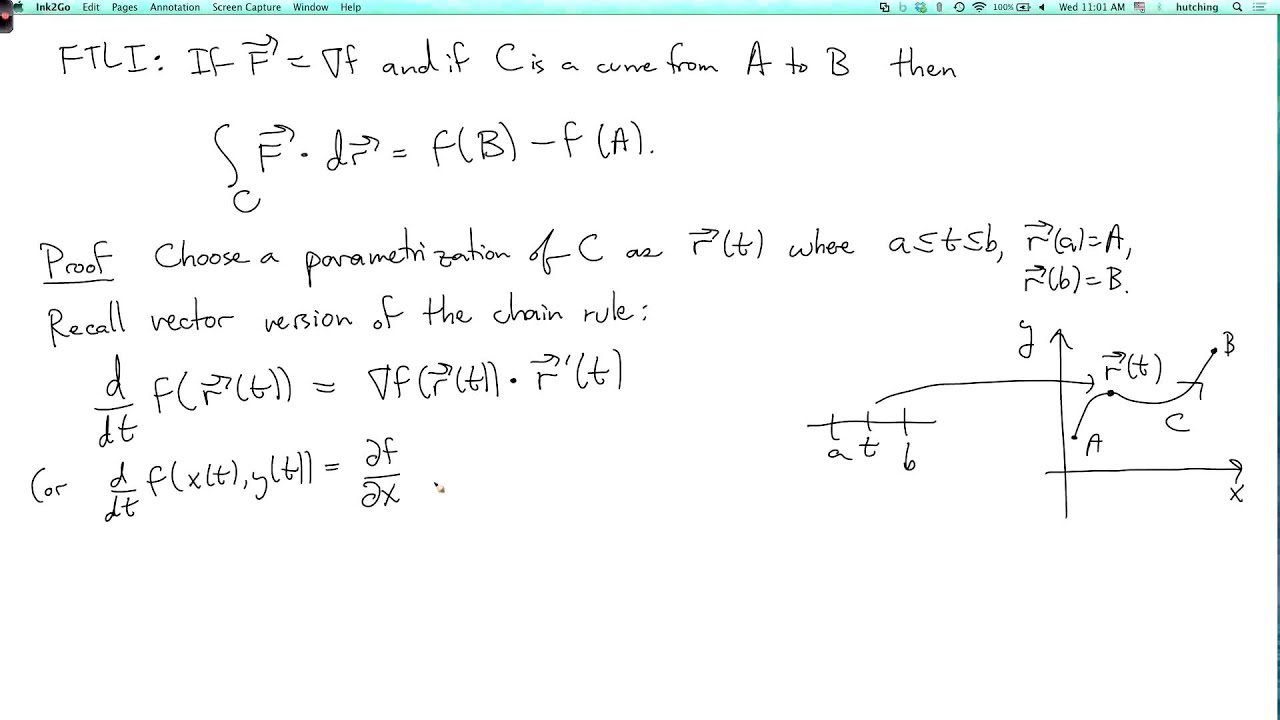 Ink2Go Edit Pages Annotation Screen Capture Window Help 100% Wed 11:01 AM hutching
FTLI: If F⃗ = ∇f and if C is a curve from A to B then
∫_C F⃗ · dr⃗ = f(B) − f(A).
Proof Choose a parametrization of C as r⃗(t) where a≤t≤b, r⃗(a)=A,
r⃗(b)=B.
Recall vector version of the chain rule:
d/dt f(r⃗(t)) = ∇f(r⃗(t)) · r⃗'(t)
(or d/dt f(x(t), y(t)) = ∂f/∂x
y
B
r⃗(t)
C
A
a t b
x